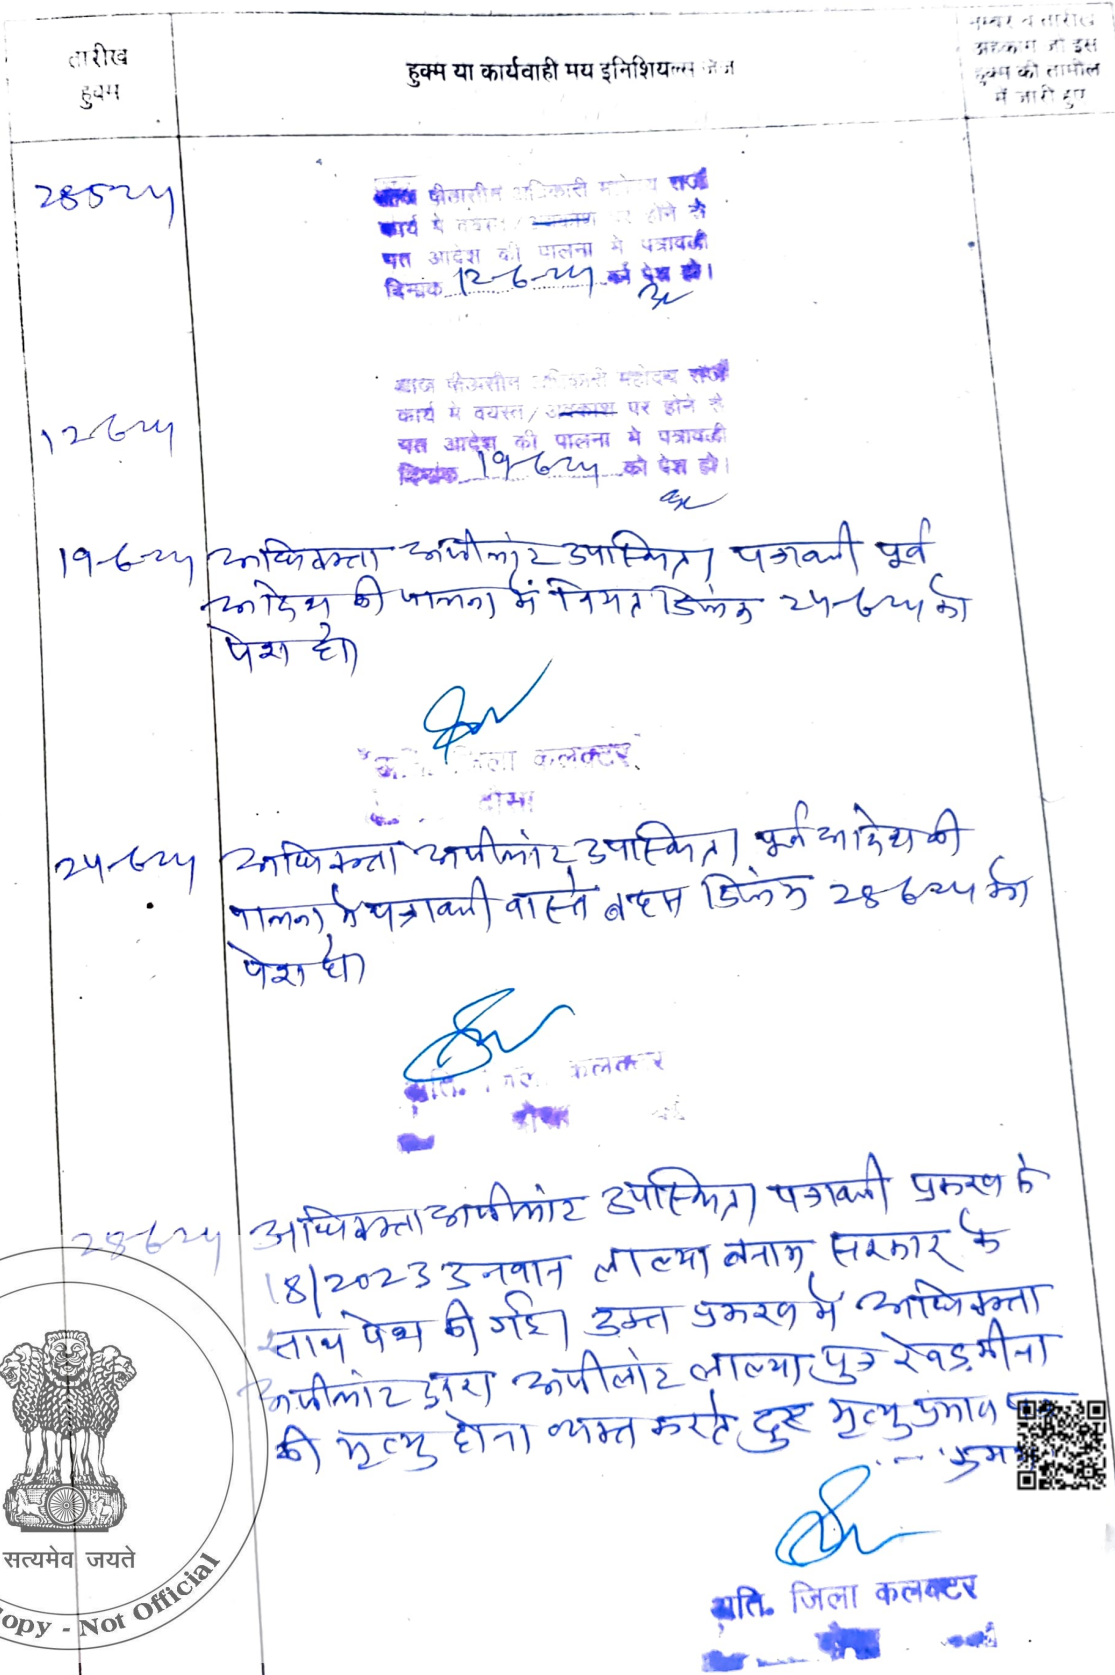 तारीख
हुक्म
हुक्म या कार्यवाही मय इनिशियल्स जज
नम्बर व तारीख
अहकाम जो इस
हुक्म की तामील
में जारी हुए
28-5-24
पीठासीन अधिकारी महोदय राज
कार्य मे व्यस्त / अवकाश पर होने से
गत आदेश की पालना मे पत्रावली
दिनांक 12-6-24 को पेश हो।
12-6-24
आज पीठासीन अधिकारी महोदय राज
कार्य मे वयस्त / अवकाश पर होने से
गत आदेश की पालना मे पत्रावली
दिनांक 19-6-24 को पेश हो।
19-6-24 अधिवक्ता अपीलांट उपस्थित। पत्रावली पूर्व
आदेश की पालना में नियत दिनांक 24-6-24 को
पेश हो।
अति. जिला कलक्टर
दौसा
24-6-24 अधिवक्ता अपीलांट उपस्थित। पूर्व आदेश की
पालना में पत्रावली वास्ते बहस दिनांक 28-6-24 को
पेश हो।
अति. जिला कलक्टर
28-6-24 अधिवक्ता अपीलांट उपस्थित। पत्रावली प्रकरण के
18/2023 उनवान लाल्या बनाम सरकार के
साथ पेश की गई। उक्त प्रकरण में अधिवक्ता
अपीलांट द्वारा अपीलांट लाल्या पुत्र रेवड़ मीना
की मृत्यु होना व्यक्त करते हुए मृत्यु प्रमाण
अति. जिला कलक्टर
सत्यमेव जयते
Copy - Not Official